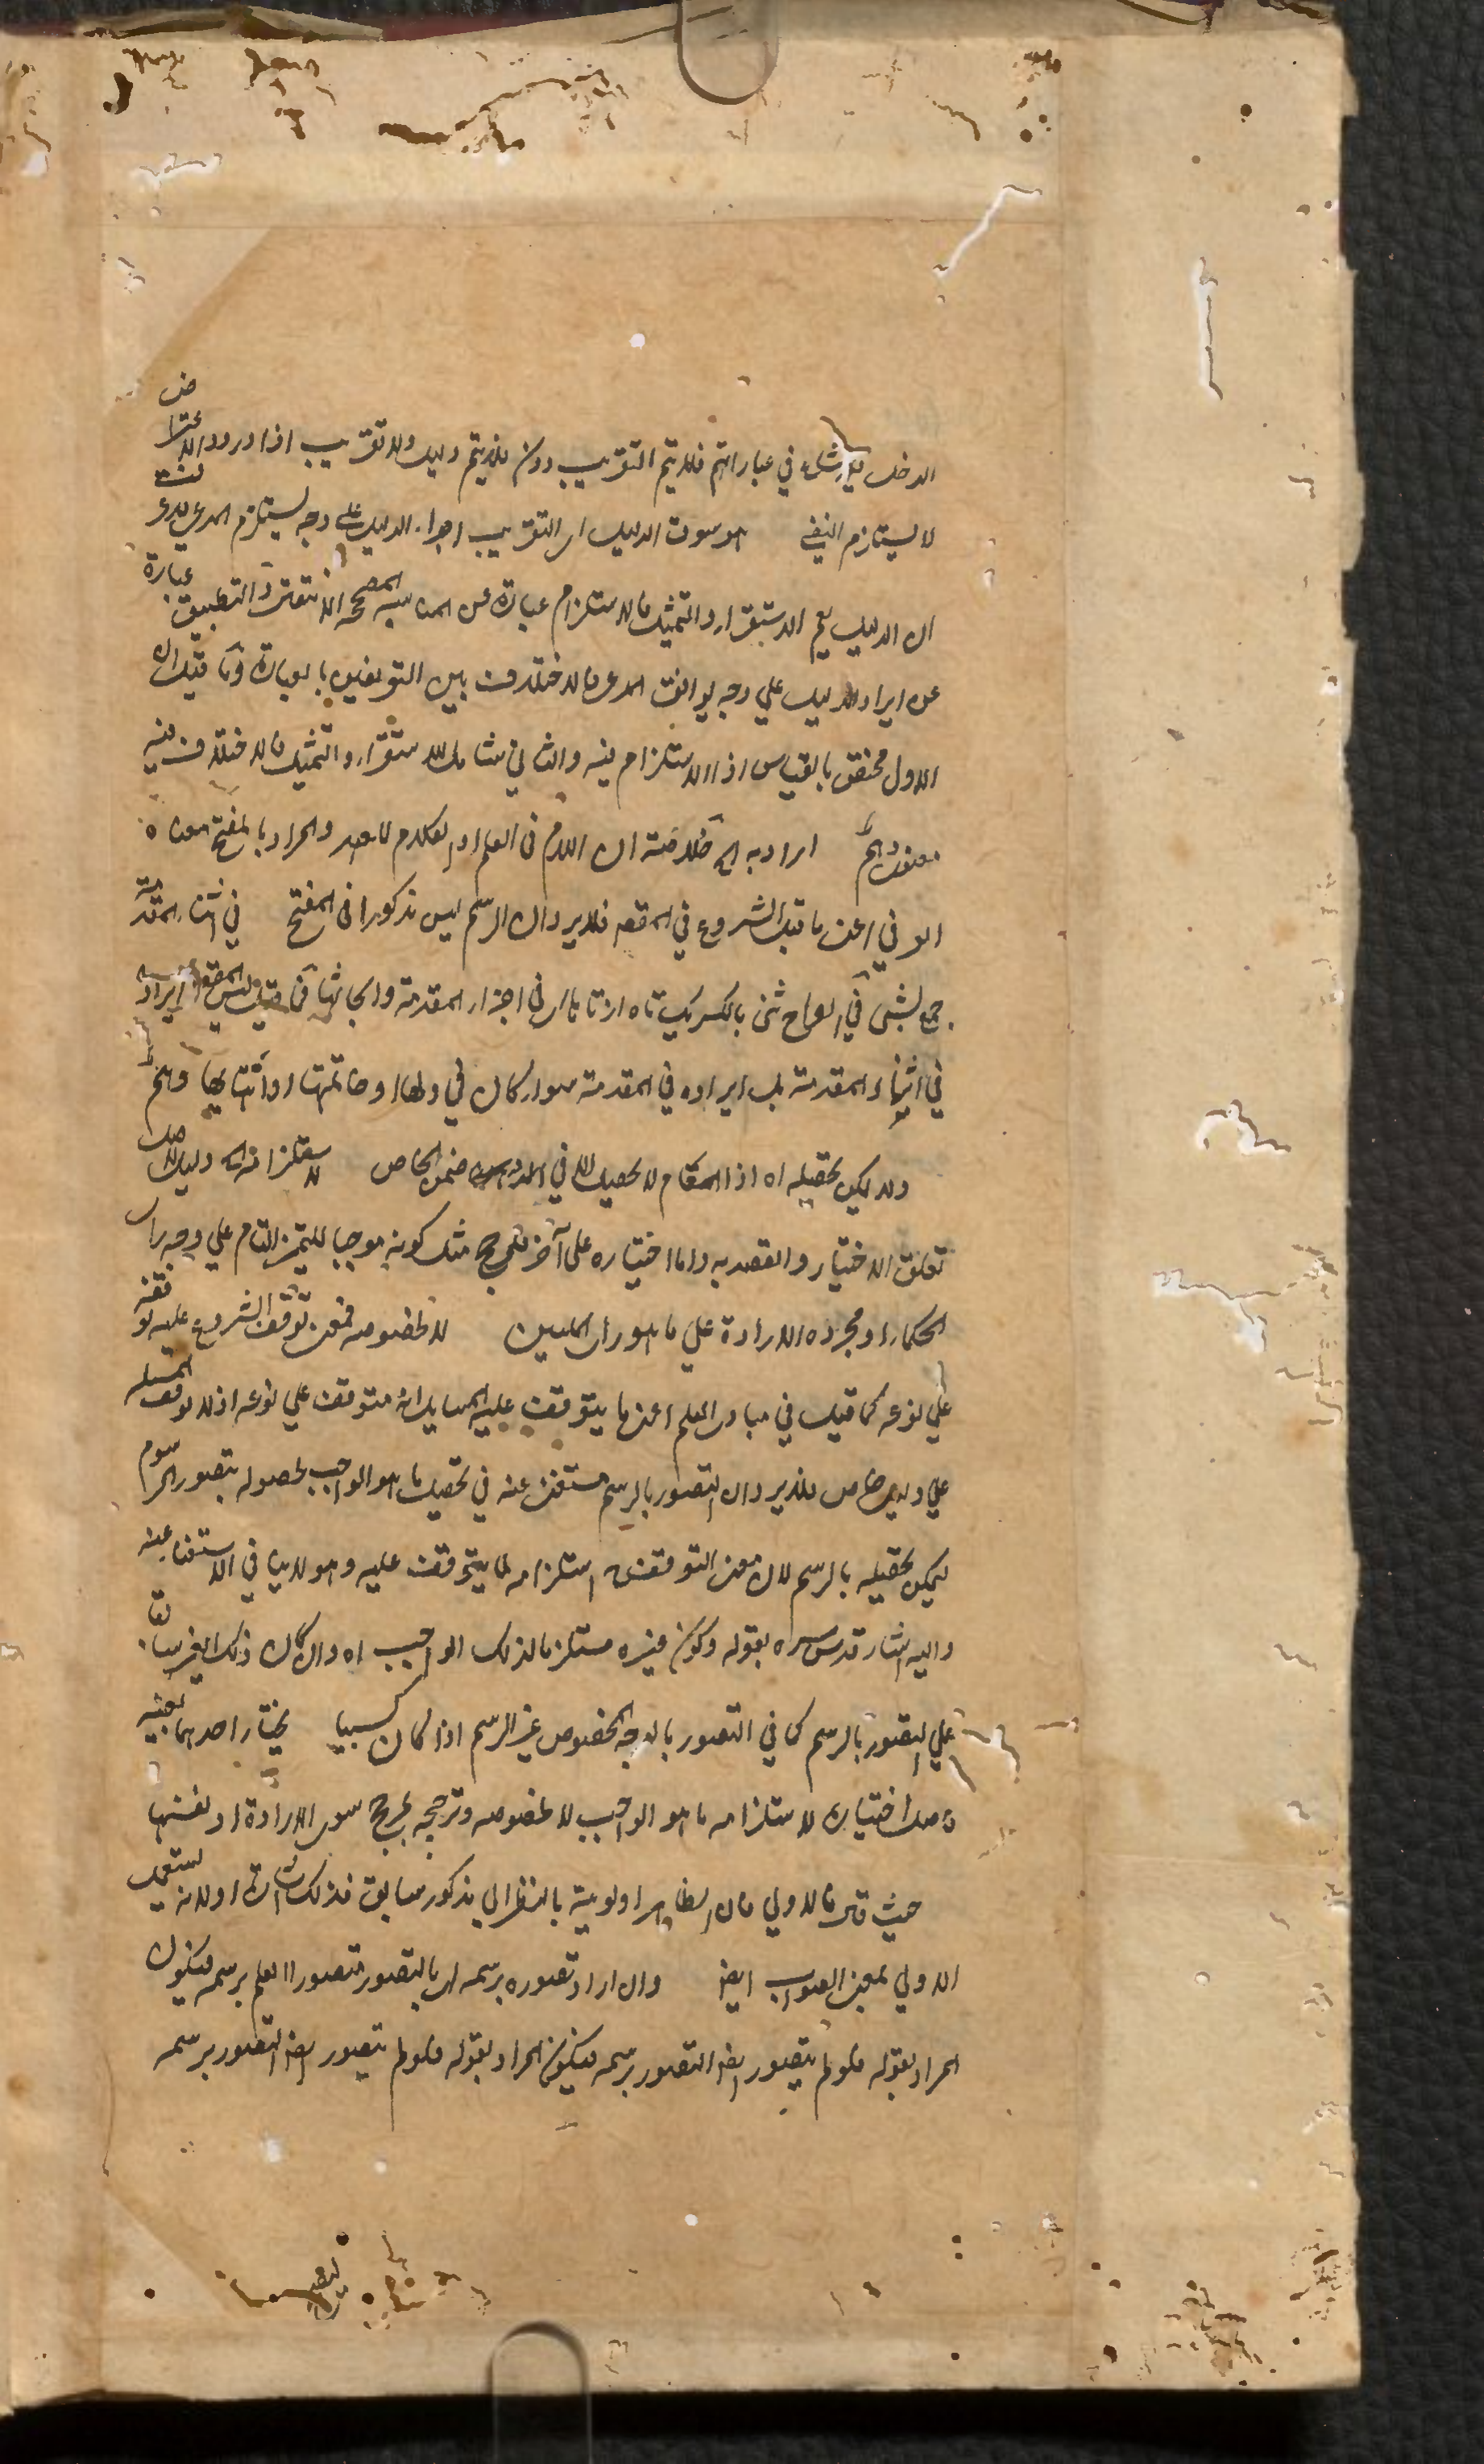 الدخل في عباراتهم فلا يتم التقريب دون فلا يتم دليل ولا تقريب اذا ورود الاعتراض
لا يستلزم النفي هو سوق الدليل اى التقريب اجراء الدليل على وجه يستلزم المدعى
ان الدليل يعم الاستقراء والتمثيل فالاستلزام عبارة عن المناسبة المصححة للانتقال والتطبيق عبارة
عن ايراد الدليل على وجه يوافق المدعى فالاختلاف بين التعريفين بالعبارة وما قيل ان
الاول مختص بالقياس اذ الاستلزام فيه والثانى شامل للاستقراء والتمثيل فالاختلاف فيه
معنوى وهم اراد به ان اللام فى العلم او الكلام للعهد والمراد بالمفتح معناه
العرفي اعنى ما قبل الشروع في المقصد فلا يرد ان الرسم ليس مذكورا فى المفتح في اثناء المقدمة
جمع ثنى في الصراح ثنى بالكسر يكتاه از تاها اى فى اجزاء المقدمة وابحاثها فما قيل ليس المقصد ايراده
في اثناء المقدمة بل ايراده في المقدمة سواء كان في اولها او خاتمتها او اثنائها وهم
ولا يمكن تحصيله اه اذ العام لا يحصل الا في ضمن الخاص لاستلزامه اه دليل لاصل
تعلق الاختيار والقصد به واما اختياره على آخر فلمرجح مثل كونه موجبا للتميز التام على وجه راى
الحكماء او مجرد الارادة على ما هو راى المليين لا لخصوصه فمعنى توقف الشروع عليه توقفه
على نوعه كما قيل في مبادى العلم اعنى ما يتوقف عليه المسايل انه متوقف على نوعه اذ لا توقف للمسئلة
على دليل خاص فلا يرد ان التصور بالرسم مستغنى عنه في تحصيل ما هو الواجب لحصوله بتصور المرسوم
يمكن تحصيله بالرسم لان معنى التوقف استلزامه لما يتوقف عليه وهو لا ينافي الاستغناء عنه
واليه اشار قدس سره بقوله وكون غيره مستلزما لذلك الواجب اه وان كان ذلك الغير سابقا
على التصور بالرسم كما في التصور بالوجه المخصوص غير الرسم اذا كان كسبيا يختار احدهما بعينه
فاصل اختياره لاستلزامه ما هو الواجب لا لخصوصه وترجيحه لمرجح سوى الارادة او نفسها
حيث قال فالاولى فان الظاهر اولوية بالنظر الى مذكور سابق فذلك اشارة او لانه يستعمل
الاولى بمعنى الصواب ايضا وان اراد تصوره برسمه اى بالتصور تصور العلم برسمه فيكون
المراد بقوله فلو لم يتصور ايضا التصور برسمه فيكون المراد بقوله فلو لم يتصور ايضا التصور برسمه